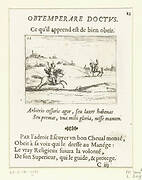 OBTEMPERARE DOCTUS.
Ce qu'il apprend est de bien obeir.
Arbitrio cessoris agor, seu laxet habenas
Seu premat, una mihi gloria, nosse manum.
Par l'adroit Escuyer un bon Cheval monté,
Obeit à sa voix qui le dresse au Manége:
Le vray Religieux suivra la volonté,
De son Superieur, qui le guide, & protege.
C iij